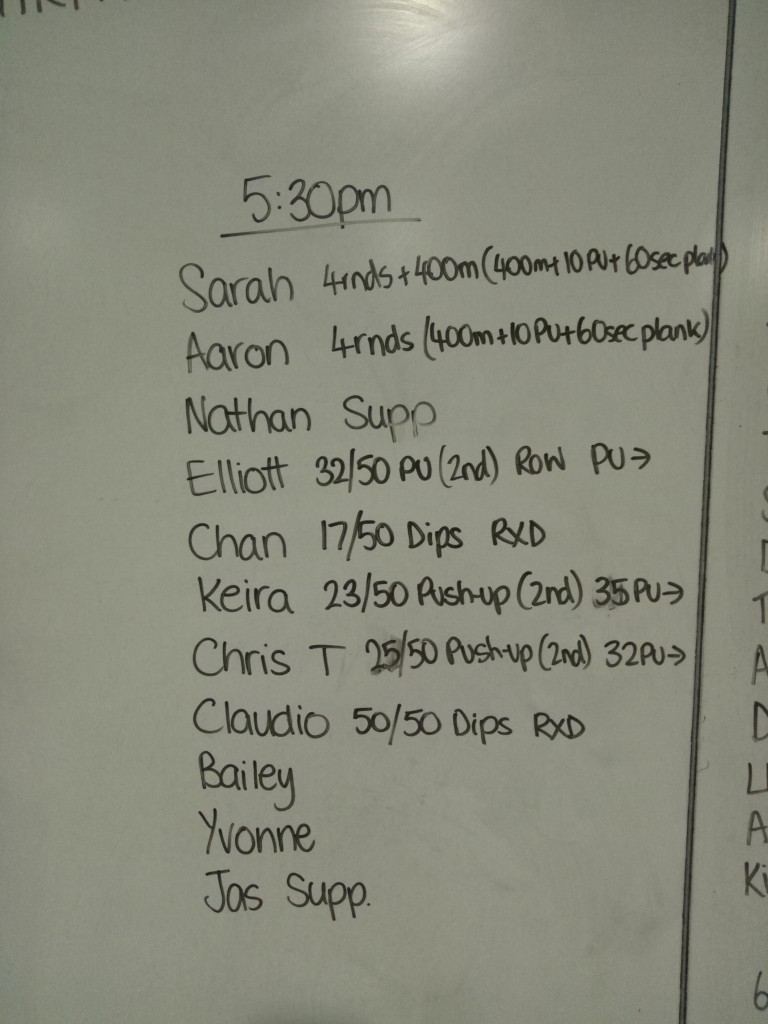 5:30pm
Sarah 4rnds + 400m (400m + 10 PU + 60sec plank)
Aaron 4rnds (400m + 10 PU + 60sec plank)
Nathan Supp
Elliott 32/50 PU (2nd) ROW PU →
Chan 17/50 Dips RXD
Keira 23/50 Push-up (2nd) 35 PU →
Chris T 25/50 Push-up (2nd) 32 PU →
Claudio 50/50 Dips RXD
Bailey
Yvonne
Jas Supp.